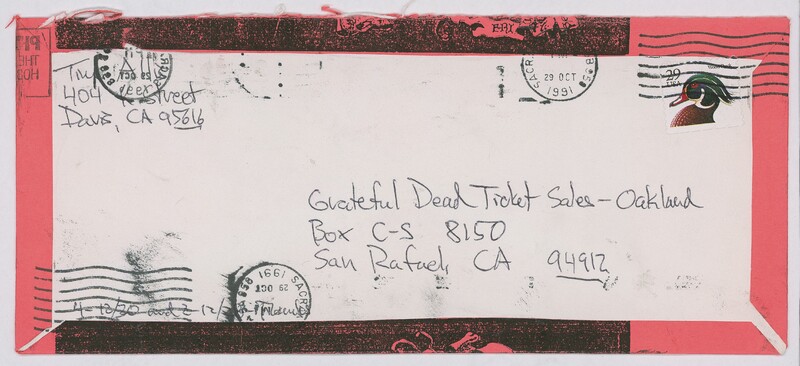 404 Street
Davis, CA 95616
29 OCT
1991
29
USA
Grateful Dead Ticket Sales - Oakland
Box C-S 8150
San Rafael, CA 94912
SACR
29 OCT
1991
858
4-12/30 and 2-12/